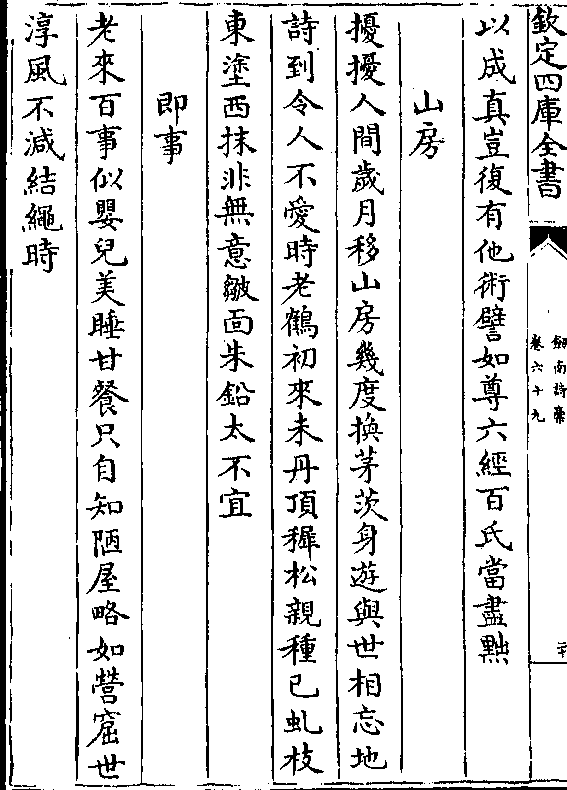 欽定四庫全書
劍南詩藁
卷六十九
以成真豈復有他術譬如尊六經百氏當盡黜
山房
擾擾人間歲月移山房幾度換茅茨身遊與世相忘地
詩到令人不愛時老鶴初來未丹頂穉松親種已虬枝
東塗西抹非無意皺面朱鉛太不宜
即事
老來百事似嬰兒美睡甘餐只自知陋屋略如營窟世
淳風不減結繩時